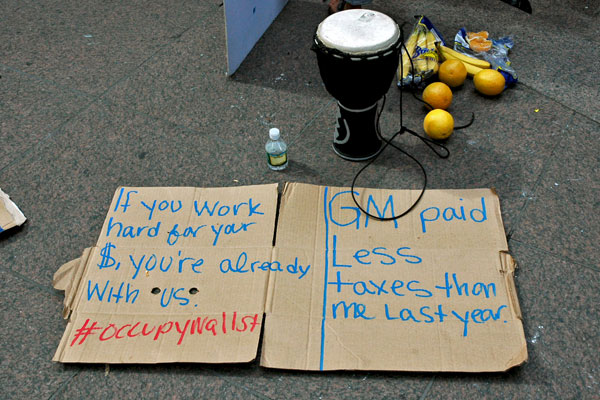 If you work
hard for your
$, you're already
with us.
#occupywallst
GM paid
Less
taxes than
me Last year.